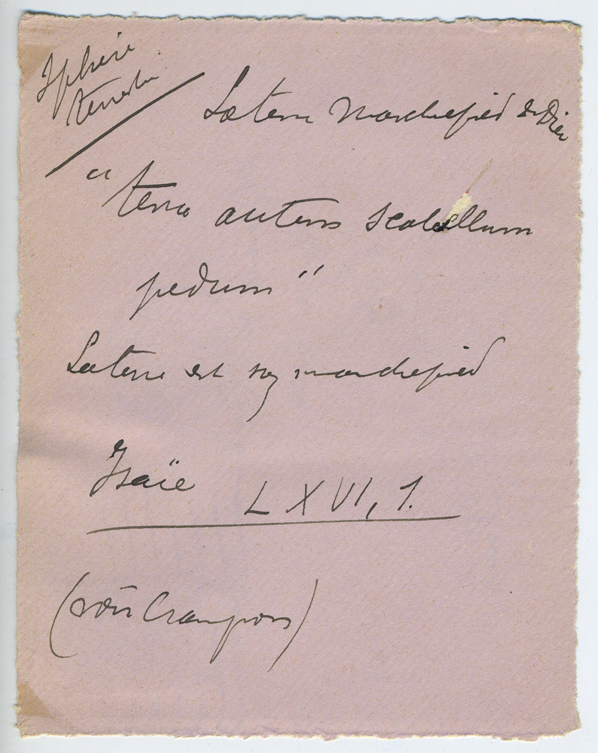 Sphère
terrestre
La terre marchepied de Dieu
"terra autem scabellum
pedum"
La terre est son marchepied
Isaïe LXVI, 1.
(voir Crampon)